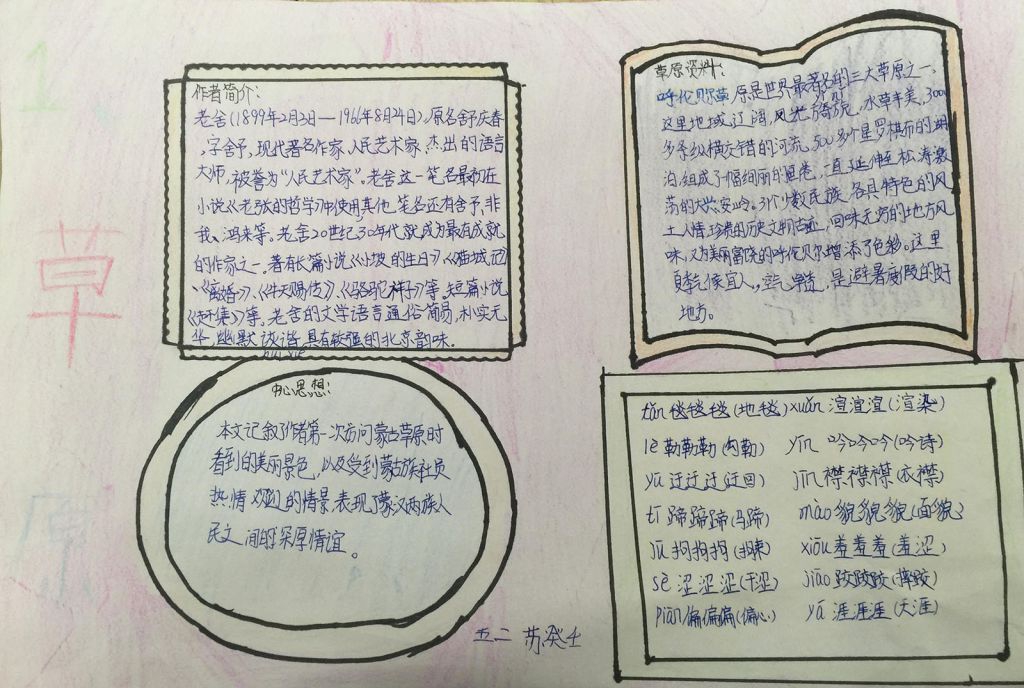 1
草
原
作者简介:
老舍(1899年2月3日—1966年8月24日),原名舒庆春
,字舍予,现代著名作家,人民艺术家,杰出的语言
大师,被誉为"人民艺术家"。老舍这一笔名最初在
小说《老张的哲学》中使用,其他笔名还有舍予,非
我、鸿来等。老舍20世纪30年代就成为最有成就
的作家之一。著有长篇小说《小坡的生日》《猫城记》
、《离婚》、《牛天赐传》、《骆驼祥子》等,短篇小说
《赶集》等。老舍的文学语言通俗简易,朴实无
华,幽默诙谐,具有较强的北京韵味。
草原资料:
呼伦贝尔草原是世界最著名的三大草原之一,
这里地域辽阔,风光旖旎,水草丰美,3000
多条纵横交错的河流,500多个星罗棋布的湖
泊,组成了一幅绚丽的画卷,一直延伸至松涛激
荡的大兴安岭。31个少数民族各具特色的风
土人情,珍贵的历史文物古迹,回味无穷的地方风
味,又为美丽富饶的呼伦贝尔增添了色彩。这里
夏季气候宜人,空气,是避暑度假的好
地方。
中心思想:
本文记叙了作者第一次访问蒙古草原时
看到的美丽景色,以及受到蒙古族社员
热情欢迎的情景,表现了蒙汉两族人
民之间的深厚情谊。
tǎn 毯毯毯(地毯) xuàn 渲渲渲(渲染)
lè 勒勒勒(勾勒) yín 吟吟吟(吟诗)
yū 迂迂迂(迂回) jīn 襟襟襟(衣襟)
tí 蹄蹄蹄(马蹄) mào 貌貌貌(面貌)
jū 拘拘拘(拘束) xiōu 羞羞羞(羞涩)
sè 涩涩涩(干涩) jiāo 跤跤跤(摔跤)
piān 偏偏偏(偏心) yá 涯涯涯(天涯)
五二 苏